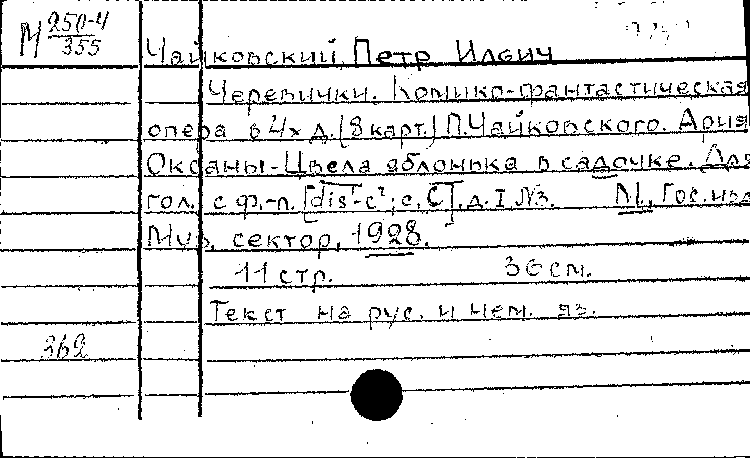 М 250-4
355
Чайковский, Петр Ильич
Черевички. Комико-фантастическая
опера в 4х д. (8 карт.) П. Чайковского. Ария
Оксаны - Цвела яблонька в садочке. Для
гол. с ф.-п. [dis¹-c²; c, C], д. I №3. М., Гос. изд.
Муз. сектор, 1928.
11 стр. 36 см.
Текст на рус. и нем. яз.
362